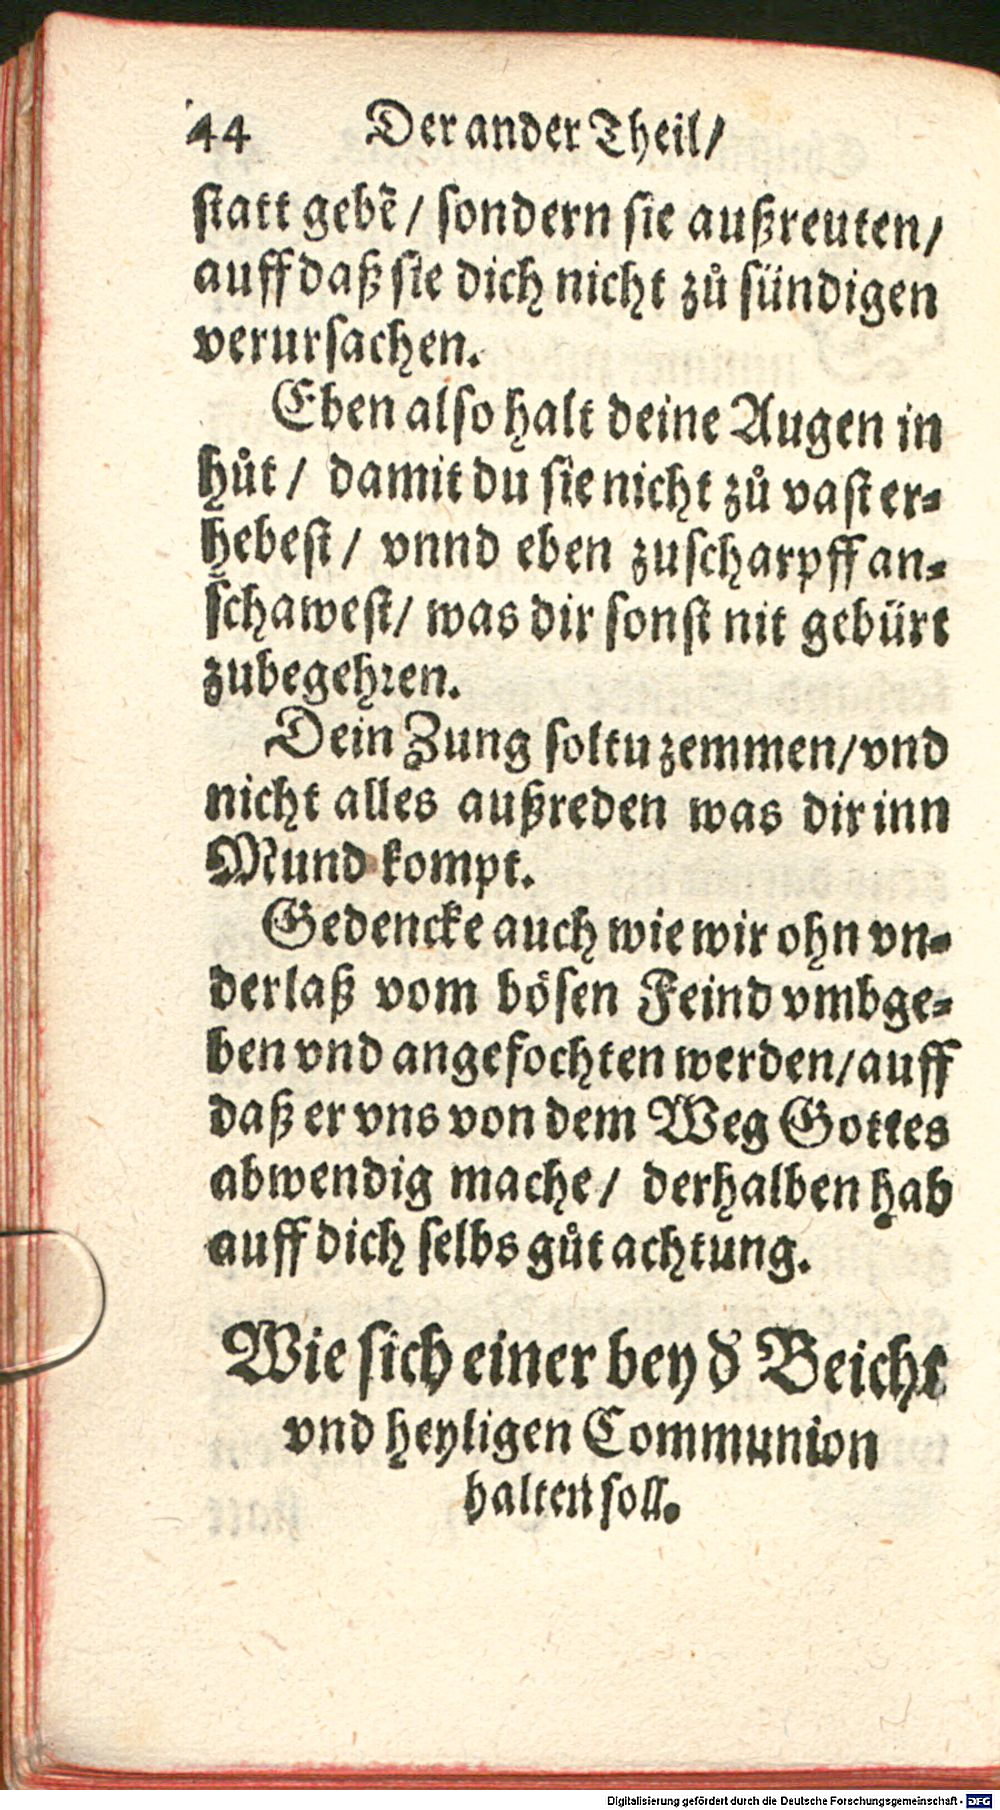 44 Der ander Theil/
ſtatt gebẽ / ſondern ſie außreuten/
auff daß ſie dich nicht zů ſündigen
verurſachen.
Eben alſo halt deine Augen in
hůt / damit du ſie nicht zů vaſt er-
hebeſt / vnnd eben zuſcharpff an-
ſchaweſt/ was dir ſonſt nit gebürt
zubegehꝛen.
Dein Zung ſoltu zemmen/vnd
nicht alles außreden was dir inn
Mund kompt.
Gedencke auch wie wir ohn vn-
derlaß vom böſen Feind vmbge-
ben vnd angefochten werden/auff
daß er vns von dem Weg Gottes
abwendig mache / derhalben hab
auff dich ſelbs gůt achtung.
Wie ſich einer bey đ Beicht
vnd heyligen Communion
halten ſoll.
Digitalisierung gefördert durch die Deutsche Forschungsgemeinschaft - DFG